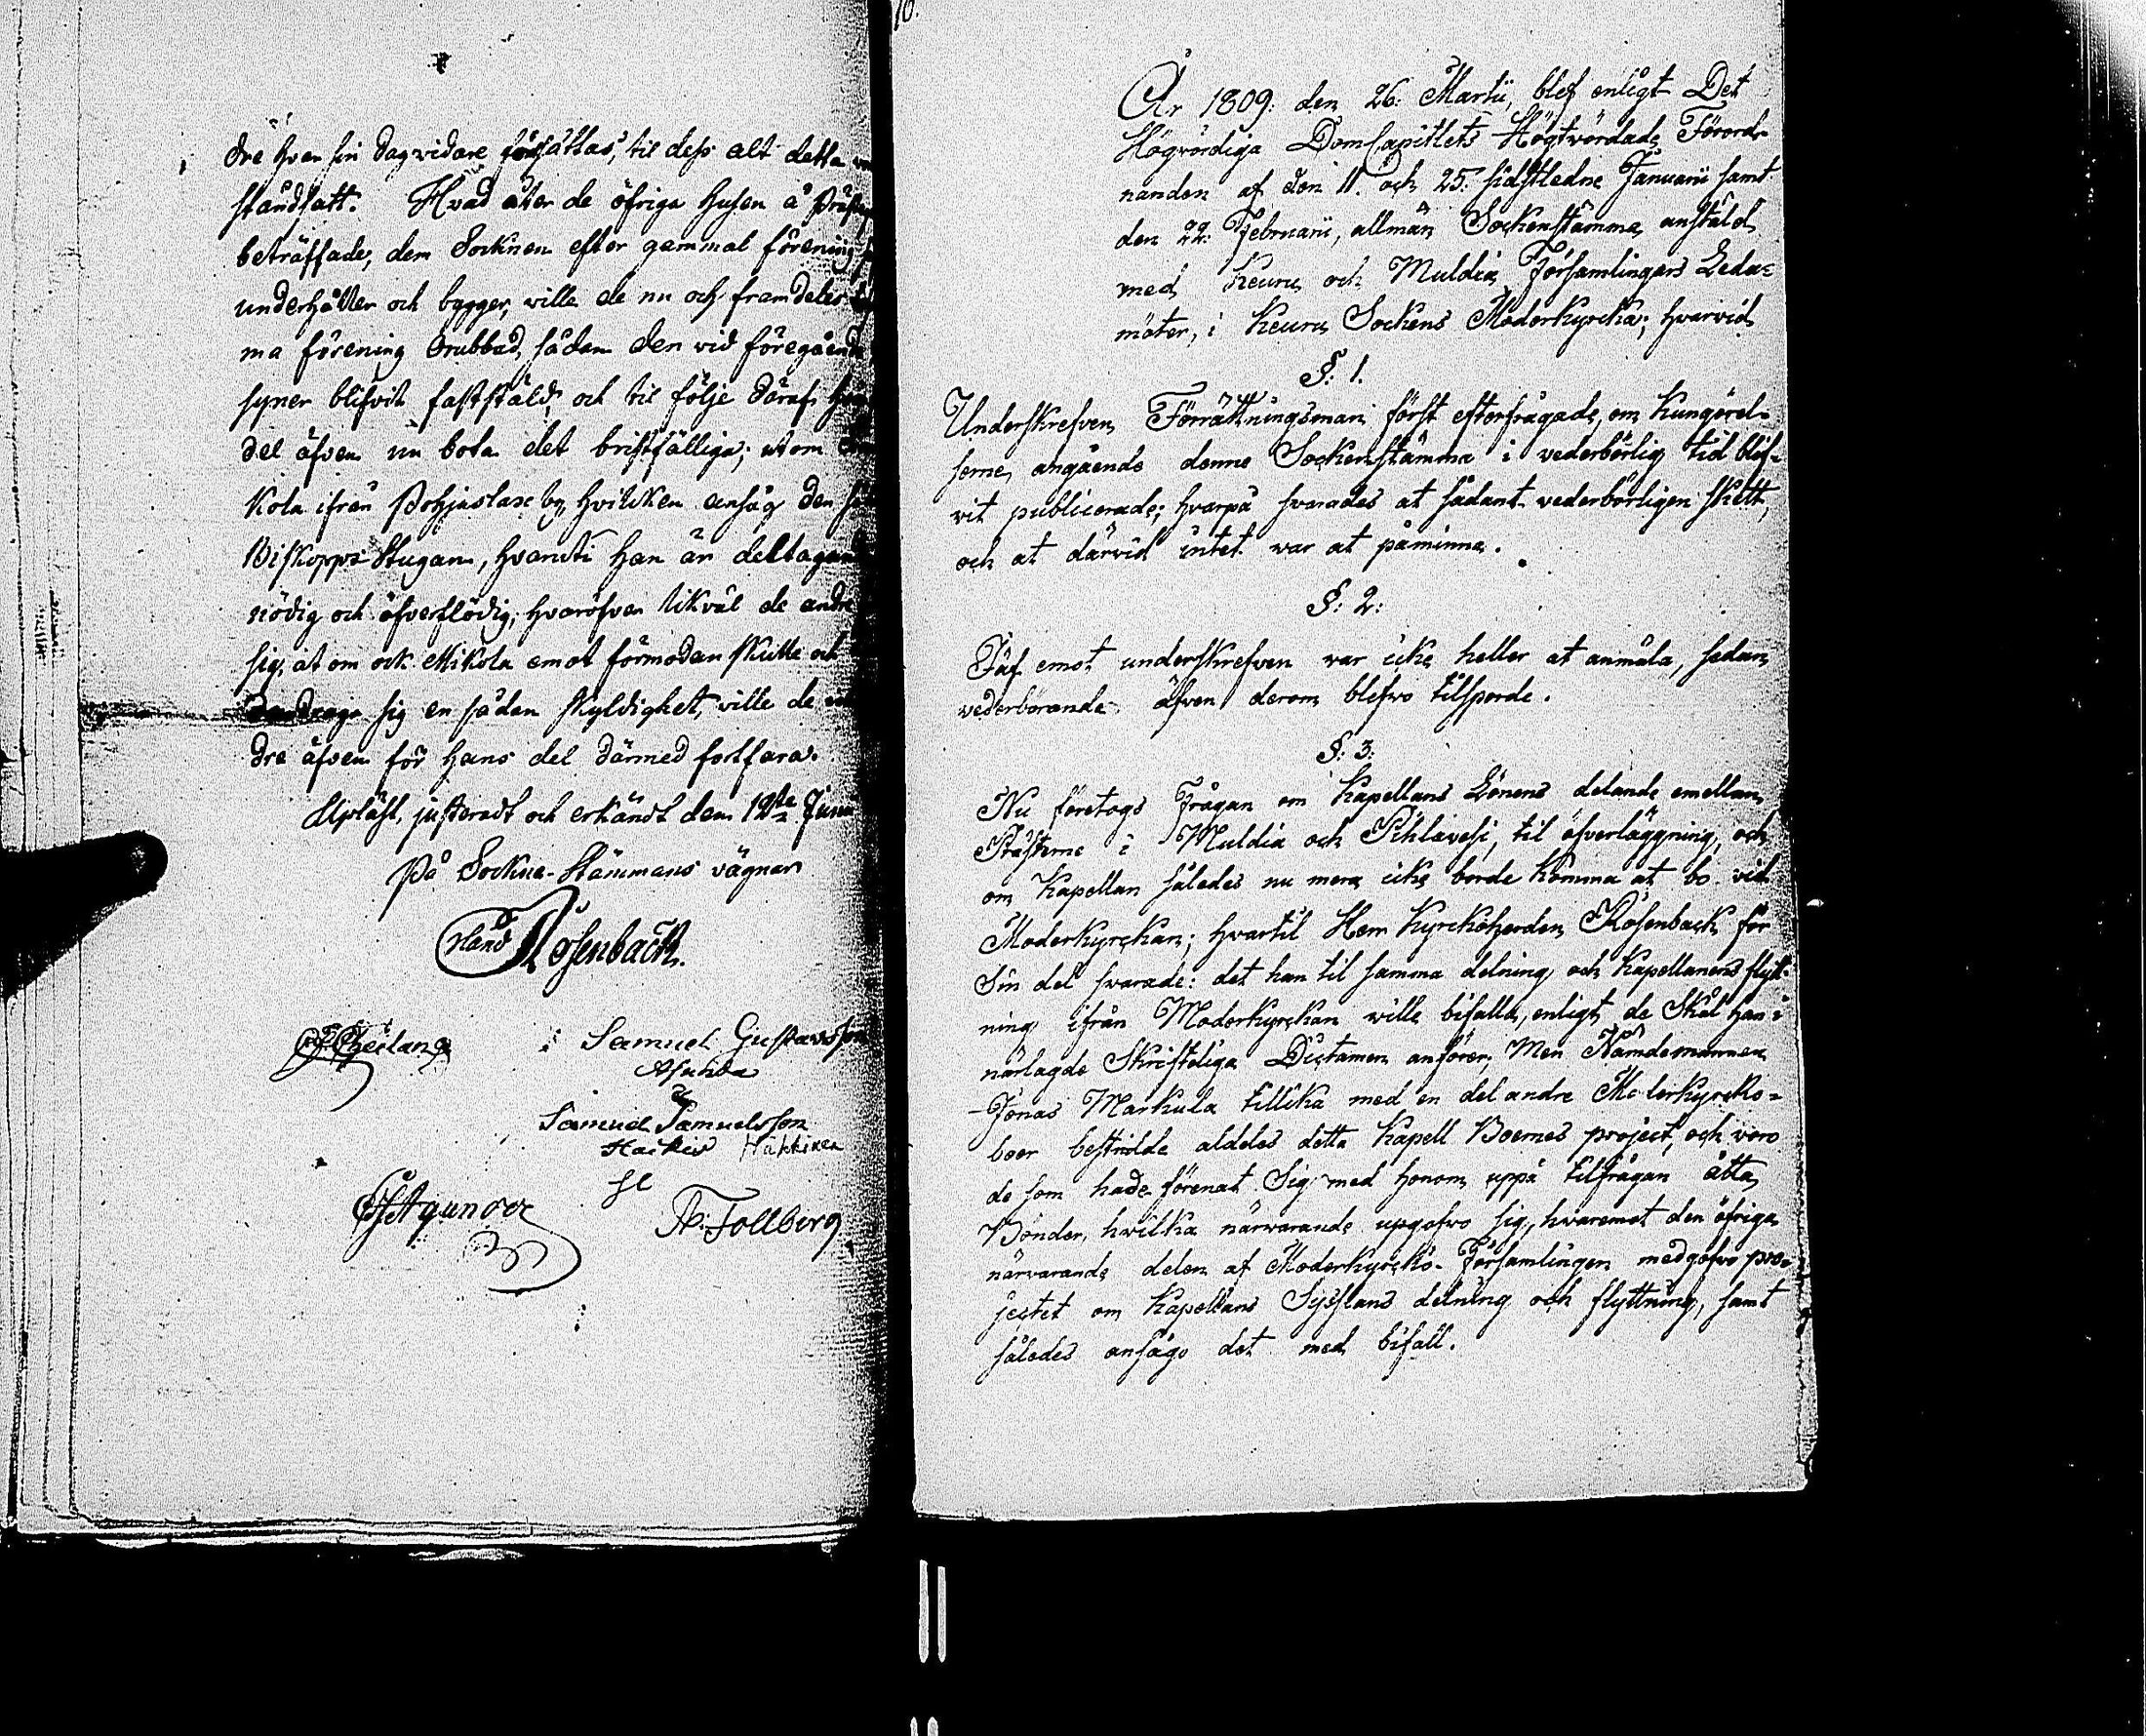 dre hvar sin dag vidare försättas, til dess alt detta
ståndsatt. Hvad åter de öfriga husen å
beträffade, dem Socknen efter gammal förening
underhåller och bygger, wille de nu och framdeles
ma förening Orubbad, sådan den vid föregående
syner blifvit fastställd och til följe däraf
del äfven nu bota det bristfälliga; utom
kola ifrån Pohjaslax by, hvilcken ansåg den
Biskops Stugan, hvaruti han är deltagande
nödig och öfverflödig, hvaröfver likväl de andre
sig, at om ock Mikola emot förmodan skulle och
sig en sådan skyldighet, wille de
dre äfven för hans del därmed fortfara.
Upläst, justeradt och erkändt dem 12te Junii
På Sockne-Stämmans vägnar
Rosenback.
Samuel Gustavsson
Asunda
Samuel Samuelsson
Häkkinen
A: Tollberg
10.
År 1809: den 26: Martii, blef enligt Det
Högvördiga DomCapitlets Högtvördade Förord-
nanden af den 11. och 25: sidstledne Januarii samt
den 22: Februarii, allmän Sockenstämma anstäld
med Keuru och Muldia Församlingars Leda=
möter, i Keuru Sockens Moderkyrcka; hvarvid
§: 1.
Underskrefven Förrättningsman först efterfrågade, om Kungörel-
serne angående denne Sockenstämma i vederbörlig tid blif-
vit publicerade; hvarpå svarades at sådant vederbörligen skett,
och at därvid intet war at påminna.
§: 2:
Jäf emot underskrefven var icke heller at anmäla, sedan
vederbörande äfven derom blefwo tilsporde.
§: 3:
Nu företogs Frågan om Kapellans Lönens delande emellan
Prästerne i Muldia och Pihlavesi, til öfverläggning, och
om Kapellan således nu mera icke borde komma at bo vid
Moderkyrckan; hvartil Herr Kyrckoherden Rosenback för
Sin del svarade: det han til samma delning och Kapellanens flytt-
ning ifrån Moderkyrckan wille bifalla, enligt de Skäl han i
närlagde Skrifteliga Dictamen anförer, Men Nämdemannen
Jonas Markula tillika med en del andre Moderkyrcko=
boer bestridde aldeles detta Kapell Boernes project, och voro
de som hade förenat Sig med honom, uppå tilfrågan åtta
Bönder, hwilka närvarande upgofvo sig, hvaremot den öfriga
närvarande delen af Moderkyrcko-Församlingen medgofvo pro-
jectet om Kapellans Sysslans delning och flyttning, samt
således ansågo det med bifall.